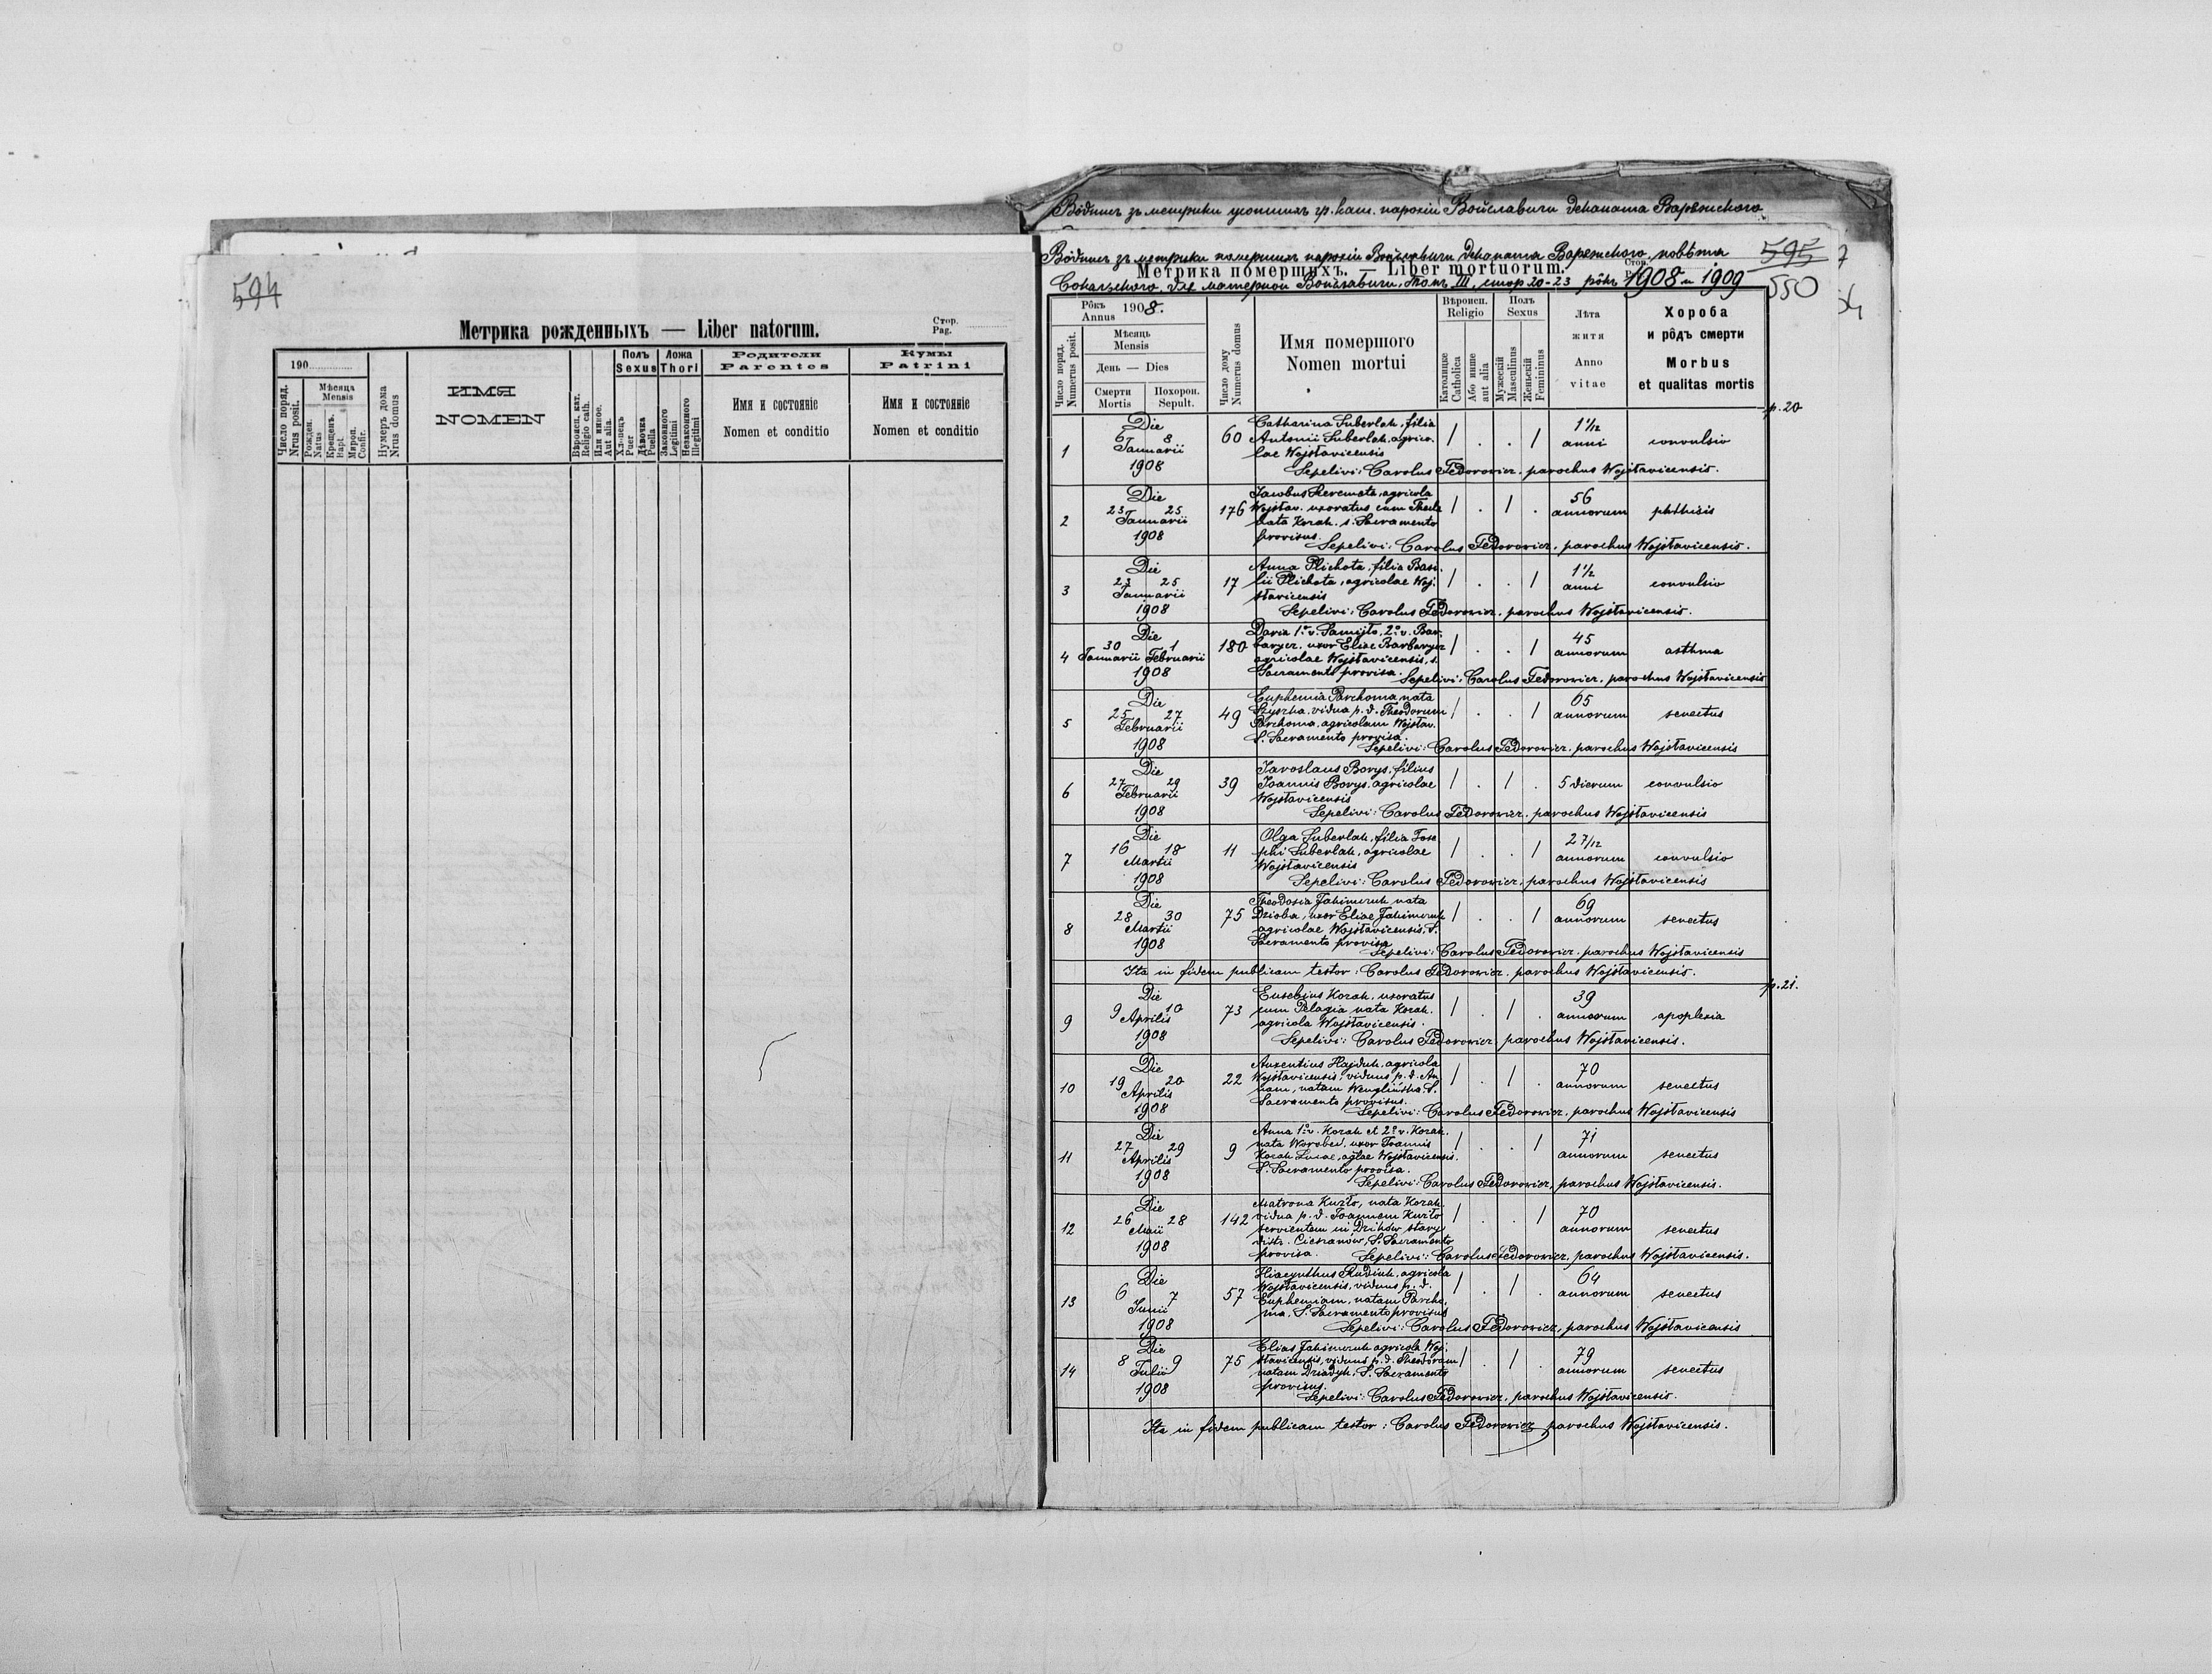 594
Метрика рожденныхъ — Liber natorum.
Стор.
Pag.
190
Число поряд.
Nrus posit.
Мѣсяца
Mensis
Рожден.
Natus
Крещенъ.
Bapt.
Мѵроп.
Confir.
Нумеръ дома
Nrus domus
ИМЯ
NOMEN
Вѣроисп. кат.
Religio cath.
Или иное.
Aut alia.
Полъ
Sexus
Хл-пецъ
Puer
Дѣвочка
Puella
Ложа
Thori
Законного
Legitimi
Незаконного
Illegitimi
Родители
Parentes
Имя и состоянiе
Nomen et conditio
Кумы
Patrini
Имя и состоянiе
Nomen et conditio
Вôдпис зъ метрики усопших гр. кат. парохiи Войславичи деканата Варяжского
Вôдпис зъ метрики померших парохiи Войславичи деканата Варяжского, повѣта
595
7
Метрика помершихъ. — Liber mortuorum.
Стор.
Сокальского, для матерной Войславичи, Томъ III, стор 20-23 рôкъ 1908 и 1909
550
Рôкъ
Annus 1908.
Число поряд.
Numerus posit.
Мѣсяць
Mensis
День — Dies
Смерти
Mortis
Похорон.
Sepult.
Число дому
Numerus domus
Имя помершого
Nomen mortui
Вѣроисп.
Religio
Католицке
Catholica
Або инше
aut alia
Полъ
Sexus
Мужескiй
Masculinus
Женьскiй
Femininus
Лѣта
житя
Anno
vitae
Хороба
и рôдъ смерти
Morbus
et qualitas mortis
p. 20
1 Die 6 8 Januarii 1908 60 Catharina Suberlak, filia
Antonii Suberlak, agrico-
lae Wojsławicensis / . . / 1 1/12 anni convulsio
Sepelivi: Carolus Fedorowicz, parochus Wojsławicensis.
2 Die 23 25 Januarii 1908 176 Jacobus Reremeta, agricola
Wojsław. uxoratus cum Thecla
nata Kozak. s. Sacramento
provisus. / . / . 56 annorum phthisis
Sepelivi: Carolus Fedorowicz, parochus Wojsławicensis.
3 Die 23 25 Januarii 1908 17 Anna Plichota, filia Basi-
lii Plichota, agricolae Woj-
sławicensis / . . / 1 1/2 anni convulsio
Sepelivi: Carolus Fedorowicz, parochus Wojsławicensis.
4 Die 30 Januarii 1 Februarii 1908 180 Daria 1º v. Samijło, 2º v. Bar-
barycz, uxor Eliae Barbarycz
agricolae Wojsławicensis, s.
Sacramento provisa. / . . / 45 annorum asthma
Sepelivi: Carolus Fedorowicz, parochus Wojsławicensis
5 Die 25 27 Februarii 1908 49 Euphemia Parchoma nata
Szyszka, vidua p. d. Theodorum
Parchoma, agricolam Wojsław.
S. Sacramento provisa. / . . / 65 annorum senectus
Sepelivi: Carolus Fedorowicz, parochus Wojsławicensis
6 Die 27 29 Februarii 1908 39 Jaroslaus Borys, filius
Joannis Borys, agricolae
Wojsławicensis / . / . 5 dierum convulsio
Sepelivi: Carolus Fedorowicz, parochus Wojsławicensis
7 Die 16 18 Martii 1908 11 Olga Suberlak, filia Jose-
phi Suberlak, agricolae
Wojsławicensis / . . / 2 7/12 annorum convulsio
Sepelivi: Carolus Fedorowicz, parochus Wojsławicensis
8 Die 28 30 Martii 1908 75 Theodosia Jakimczuk nata
Dzioba, uxor Eliae Jakimczuk
agricolae Wojsławicensis, S.
Sacramento provisa / . . / 69 annorum senectus
Sepelivi: Carolus Fedorowicz, parochus Wojsławicensis
Ita in fidem publicam testor: Carolus Fedorowicz, parochus Wojsławicensis.
p. 21.
9 Die 9 10 Aprilis 1908 73 Eusebius Kozak, uxoratus
cum Pelagia nata Kozak.
agricola Wojsławicensis. / . / . 39 annorum apoplexia
Sepelivi: Carolus Fedorowicz parochus Wojsławicensis.
10 Die 19 20 Aprilis 1908 22 Auxentius Hajduk, agricola
Wojsławicensis, viduus p. d. An-
nam, natam Wenglińska. S.
Sacramento provisus. / . / . 70 annorum senectus
Sepelivi: Carolus Fedorowicz, parochus Wojsławicensis
11 Die 27 29 Aprilis 1908 9 Anna 1º v. Kozak et 2º v. Kozak.
nata Worobec, uxor Joannis
Kozak Lucae, aglae Wojsławicensis.
S. Sacramento provisa. / . . / 71 annorum senectus
Sepelivi: Carolus Fedorowicz, parochus Wojsławicensis.
12 Die 26 28 Maii 1908 142 Matrona Kuzło, nata Kozak
vidua p. d. Joannem Kuzło
servientem in Dzików stary
distr. Cieszanów, S. Sacramento
provisa. / . . / 70 annorum senectus
Sepelivi: Carolus Fedorowicz, parochus Wojsławicensis.
13 Die 6 7 Junii 1908 57 Hiacynthus Rudiuk, agricola
Wojsławicensis, viduus p. d.
Euphemiam, natam Parcho-
ma. S. Sacramento provisus / . / . 64 annorum senectus
Sepelivi: Carolus Fedorowicz, parochus Wojsławicensis
14 Die 8 9 Julii 1908 75 Elias Jakimczuk agricola Woj-
sławicensis, viduus p. d. Theodosiam
natam Dziadyk, S. Sacramento
provisus. / . / . 79 annorum senectus
Sepelivi: Carolus Fedorowicz, parochus Wojsławicensis.
Ita in fidem publicam testor: Carolus Fedorowicz parochus Wojsławicensis.